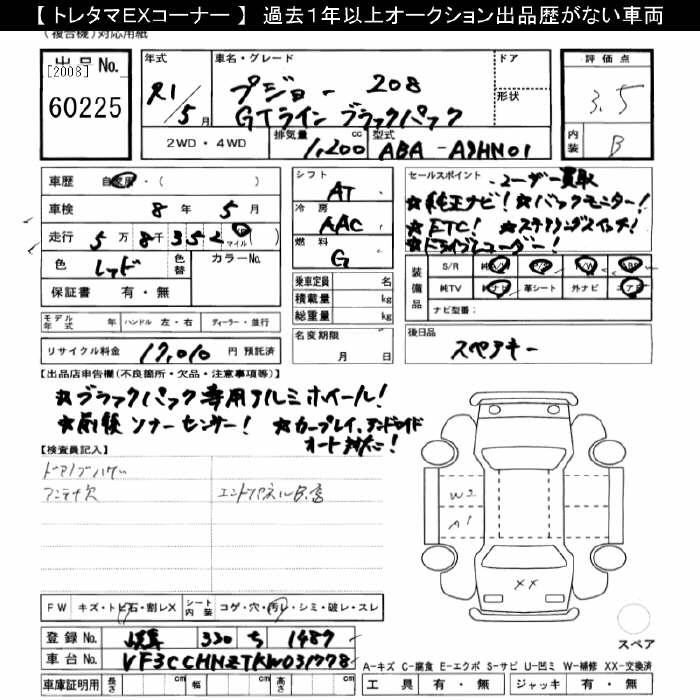 【トレタマEXコーナー】 過去１年以上オークション出品歴がない車両
(複合機)対応用紙
出品No.
[2008]
60225
年式
R1/5月
車名・グレード
プジョー 208
GTライン ブラックパック
ドア
形状
評価点
3.5
内装
B
2WD・4WD
排気量
1,200cc
型式
ABA-A9HN01
車歴 自家用・( )
車検 8年 5月
走行 5万8千352 マイル( )
色 レッド
色替
カラーNo.
保証書 有・無
シフト
AT
冷房
AAC
燃料
G
乗車定員 名
積載量 kg
総重量 kg
セールスポイント
ユーザー買取
★純正ナビ! ★バックモニター!
★ETC! ★ステアリングスイッチ!
★ドライブレコーダー!
装備品
S/R 純A/W P/S P/W ABS
純TV 純ナビ 革シート 外ナビ エアB
ナビ型番:
モデル年式 年 ハンドル 左・右 ディーラー・並行
リサイクル料金 17,010 円 預託済
名変期限
月 日
後日品
スペアキー
【出品店申告欄(不良箇所・欠品・注意事項等)】
★ブラックパック専用アルミホイール!
★前後ソナーセンサー! ★カープレイ、アンドロイド
オート対応!
【検査員記入】
ドアノブハゲ
アンテナ欠
W2
A1
XX
FW キズ・トビ石・割レX
シート内装 コゲ・穴・汚レ・シミ・破レ・スレ
登録No. 330 ち 1487
車台No. VF3CCHNZTKW031778
車庫証明用 長さ cm 幅 cm 高さ cm
スペア
A-キズ C-腐食 E-エクボ S-サビ U-凹ミ W-補修 XX-交換済
工具 有・無 ジャッキ 有・無